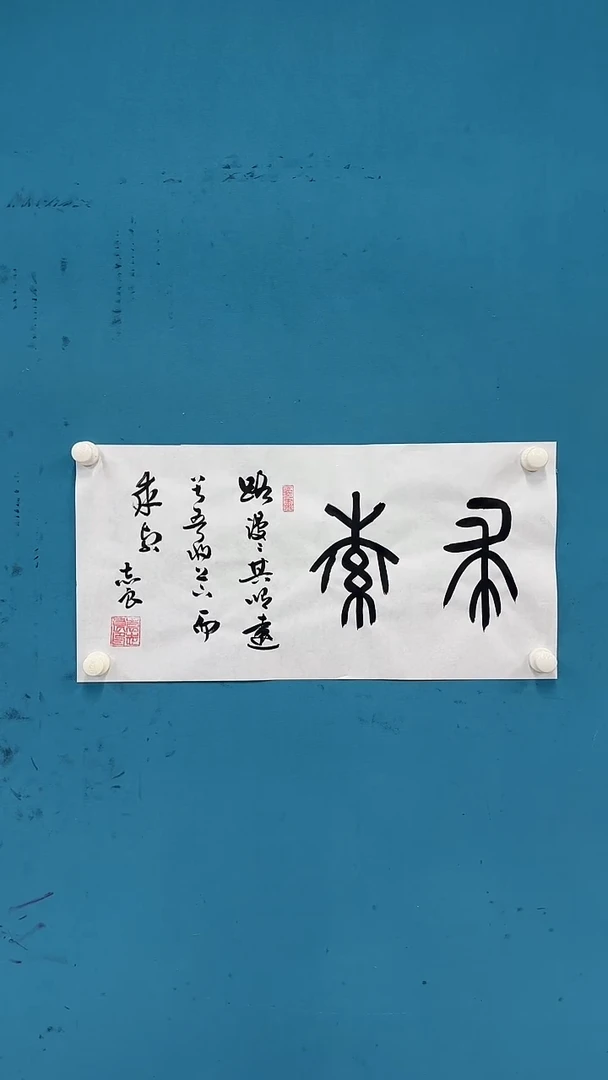 求索
路漫〻其修遠
兮吾將上下而
求索
志良